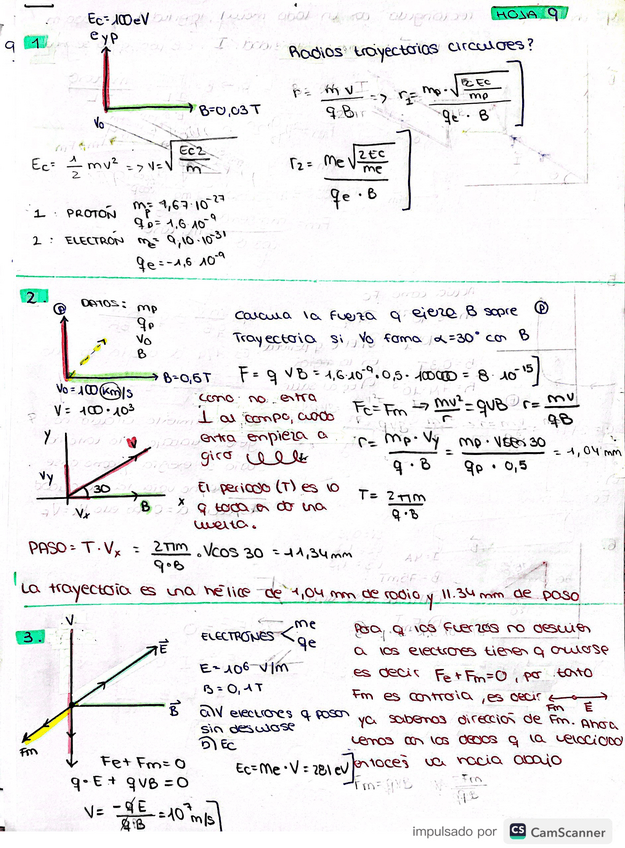 HOJA 9
Ec=100eV
e y p
9 1
Radios trayectorias circulares?
B=0,03 T
Vo
r = m v / q B => r1 = mp · √(2Ec/mp) / qe · B
Ec = 1/2 mv² => v = √(Ec2/m)
r2 = me √(2Ec/me) / qe · B
1 : PROTÓN mp = 1,67·10^-27
qp = 1,6·10^-9
2 : ELECTRÓN me = 9,10·10^-31
qe = -1,6·10^-9
2.
P
DATOS: mp
qp
Vo
B
Calcula la fuerza q ejerce B sobre P
Trayectoria si Vo forma α=30° con B
B=0,5T
Vo=100 km/s
V = 100·10³
F = q V B = 1,6·10^-9 · 0,5 · 10000 = 8·10^-15
como no entra
⊥ al campo, cuando
entra empieza a
girar
Fc = Fm → mv²/r = qVB r = mv/qB
r = mp · Vy / q · B = mp · Vsen 30 / qp · 0,5 = 1,04 mm
y
V
Vy
30
Vx
B
x
El periodo (T) es lo
q tarda en dar una
vuelta.
T = 2πm / q·B
PASO = T·Vx = 2πm / q·B · Vcos 30 = 11,34 mm
La trayectoria es una hélice de 1,04 mm de radio y 11.34 mm de paso
3.
V
E
B
Fm
ELECTRONES me
qe
E = 10⁶ V/m
B = 0,1 T
a) V electrones q pasan
sin desviarse
b) Ec
Para q las fuerzas no desvien
a los electrones tienen q anularse
es decir Fe + Fm = 0, por tanto
Fm es contraria, es decir Fm E
ya sabemos dirección de Fm. Ahora
vemos con los dedos q la velocidad
entonces va hacia abajo
Fe + Fm = 0
q·E + qVB = 0
V = -qE / q·B = 10⁷ m/s
Ec = Me · V = 281 eV
impulsado por CS CamScanner